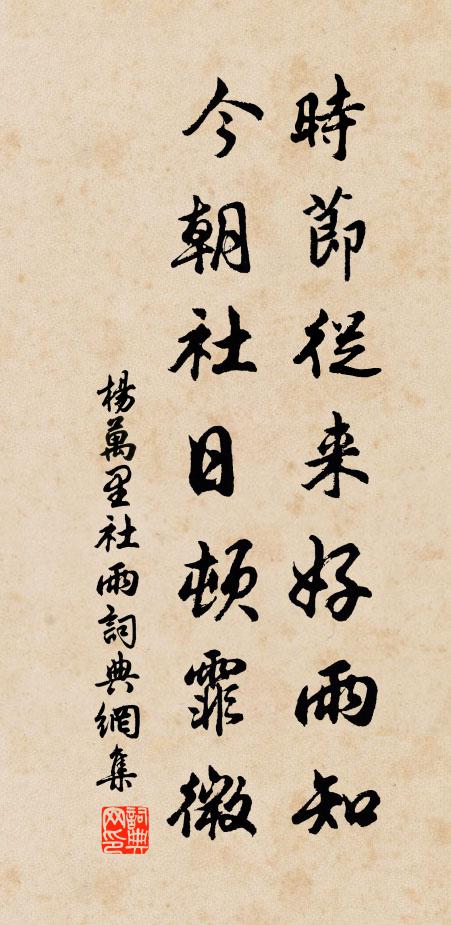 時節從来好雨知
今朝社日頓霏微
楊萬里社雨詞典網集
詞典网印